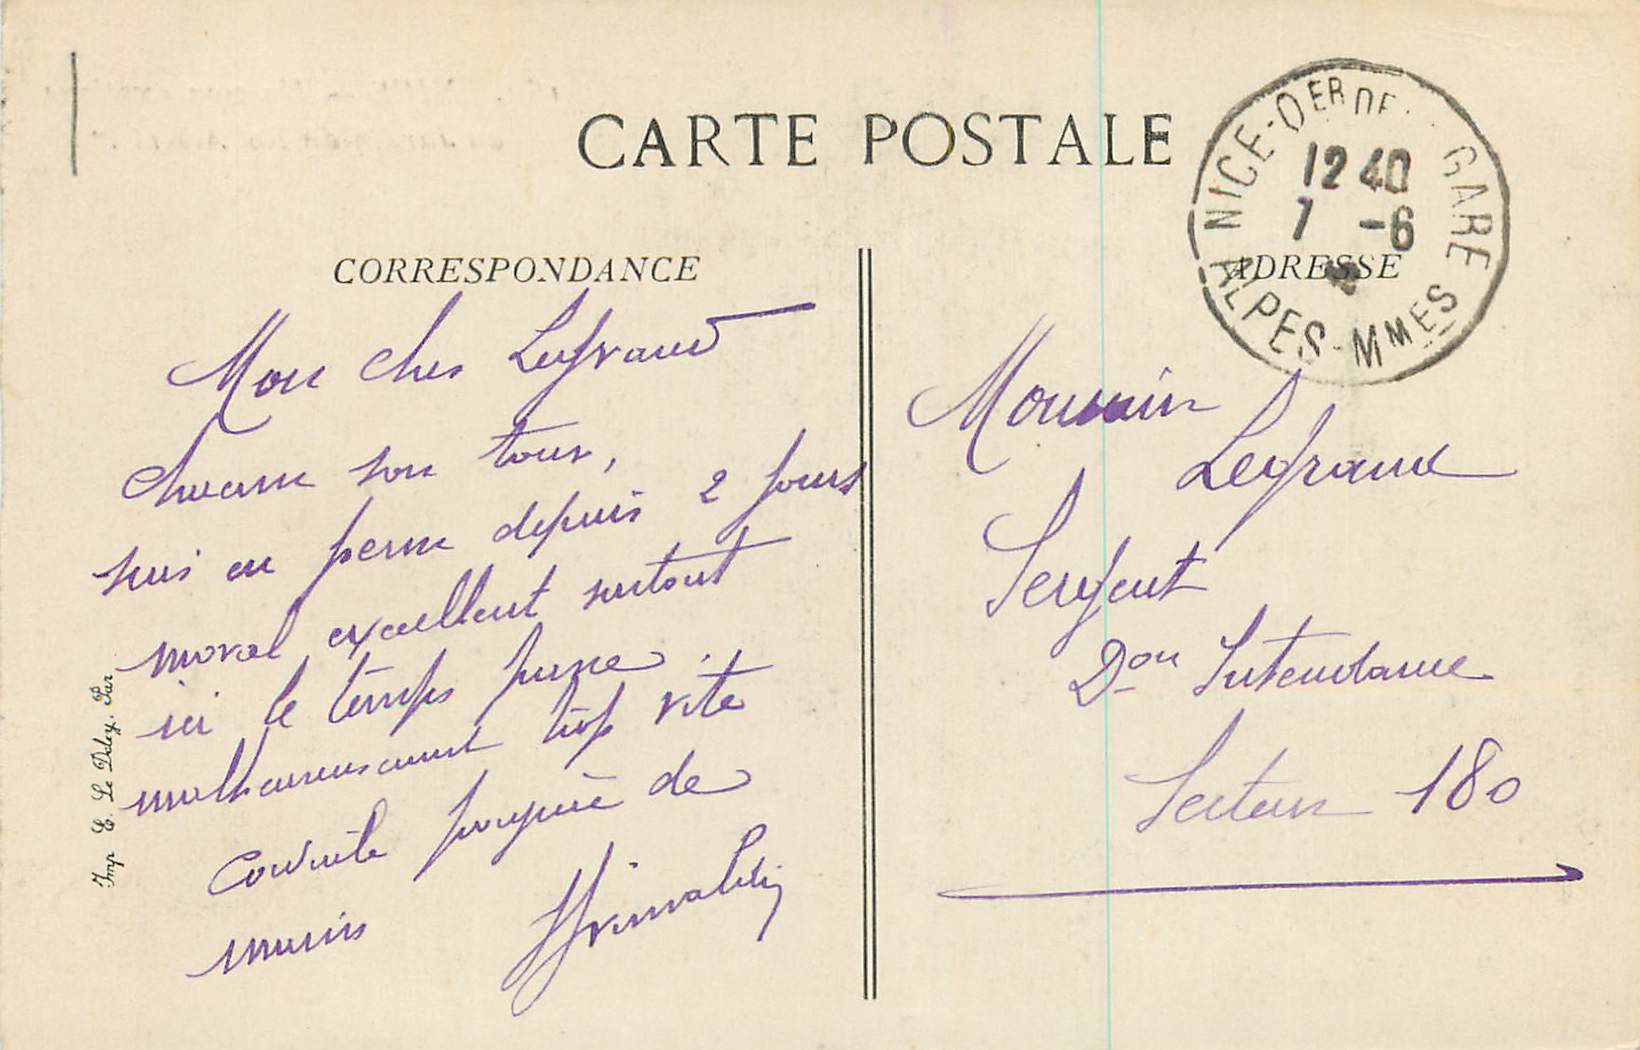 CARTE POSTALE
NICE-
GARE
12 40
7 -6
ALPES-MMES
CORRESPONDANCE
ADRESSE
Mon cher Legrand
chacun son tour,
suis en perm depuis 2 jours
moral excellent surtout
ici le temps passe
malheureusement trop vite
Cordiale poignée de
mains
Grimaldi
Monsieur
Legrand
Sergent
Don Intendance
Secteur 180
Imp. E. Le Deley, Par